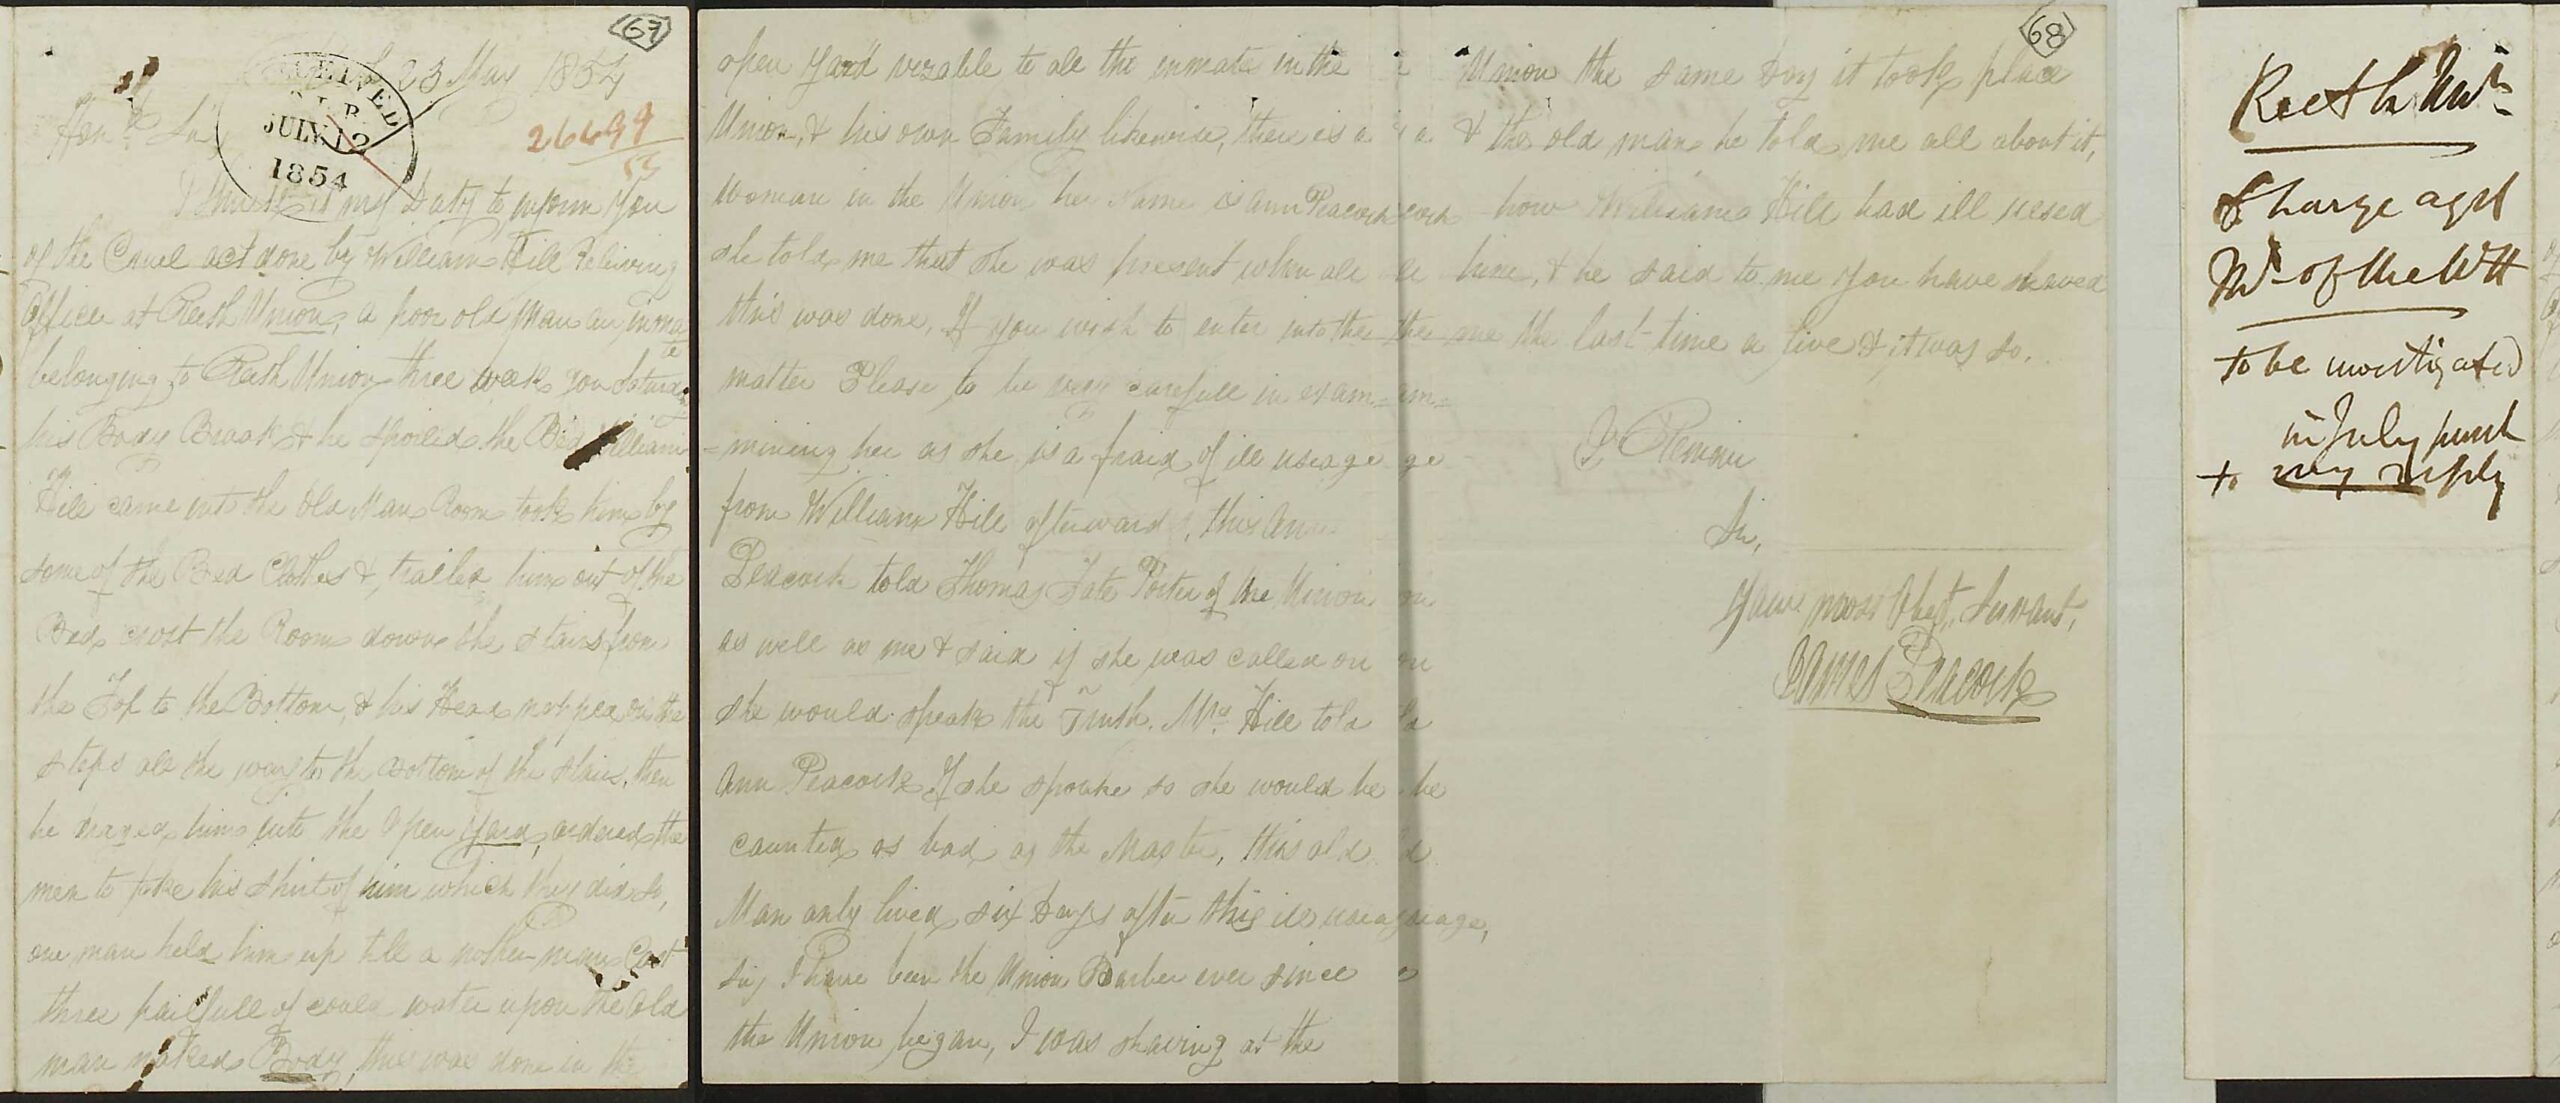 67
23 May 1854
RECEIVED
JULY 12
1854
Hond. Sir,
26499
54
I think it my Duty to inform you
of the Cruel act done by William Hill Reliving
Officer at Reeth Union, a poor old Man an inma
te
belonging to Reeth Union three week gon Saturday
his Body Braak & he spoiled the Bed William
Hill came into the Old Mans Room took him by
some of the Bed Clothes & trailed him out of the
Bed crost the Room down the stairs from
the Top to the Bottom, & his Head nopped on the
steps all the way to the Bottom of the stairs, then
he draged him into the Open Yard, ordered the
men to take his Shirt of him which they did so,
one man held him up till a nother man Cast
three pailfull of could water upon the Old
man naked Body, this was done in the
open Yard vezable to all the inmates in the
Union, & his own Family likewise, there is a
Woman in the Union her Name is Ann Peacock
she told me that she was present when all
this was done, If you wish to enter into the
matter Please to be very carefull in exam=
=mining her as she is a fraid of ill useage
from William Hill afterwards, this Ann
Peacock told Thomas Tate Porter of the Union
as well as me & said if she was called on
she would speak the Truth. Mrs. Hill told
Ann Peacock If she spoake so she would be
counted as bad as the Master, this old
Man only lived six Days after this ill useage,
Sir, I have been the Union Barber ever since
the Union began, I was shaving at the
68
Union the same Day it took place
& the old man he told me all about it,
how William Hill had ill used
him, & he said to me you have shaved
me the last time a live & it was so.
I Remain
Sir,
Your most Obet. Servant,
James Peacock
Reeth Un.
Charge agst
Mr of the WH
to be investigated
in July punct
to my reply